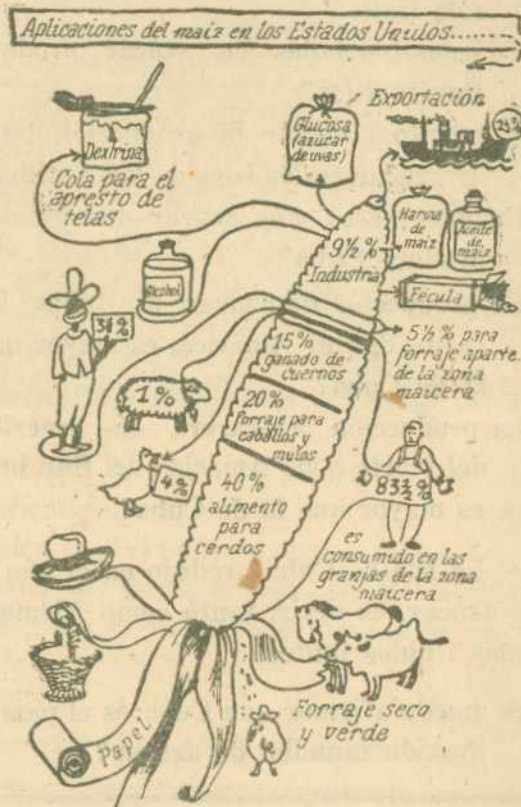 Aplicaciones del maíz en los Estados Unidos......
Dextrina
Cola para el
apresto de
telas
Glucosa
(azúcar
de uvas)
Exportación
2½%
Harina
de
maíz
Aceite
de
maíz
Fécula
Alcohol
9½ %
Industria
5½ % para
forraje aparte
de la zona
maicera
15%
ganado de
cuernos
1%
20%
forraje para
caballos y
mulos
4%
40%
alimento
para
cerdos
83½%
es
consumido en las
granjas de la zona
maicera
Forraje seco
y verde
Papel